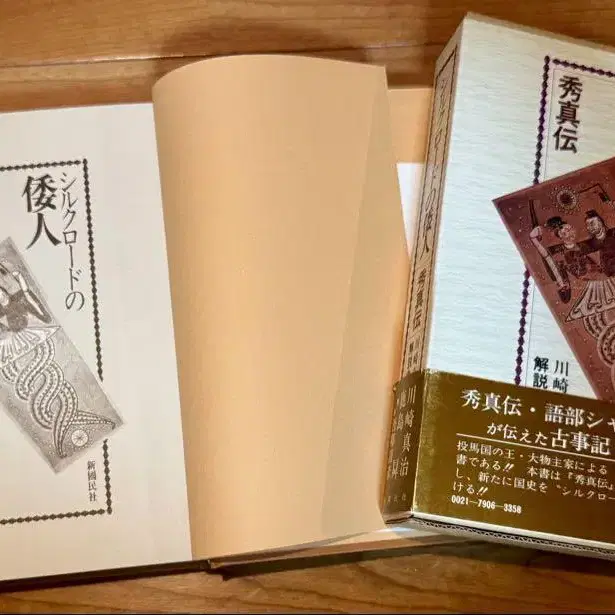 シルクロードの
倭人
新國民社
シルクロードの倭人
秀真伝
川崎真治
秀真伝
川崎
解説
秀真伝・語部シャ
が伝えた古事記
投馬国の王・大物主家による
書である!! 本書は『秀真伝』
し、新たに国史を“シルクロー
ける!!
0021-7906-3358